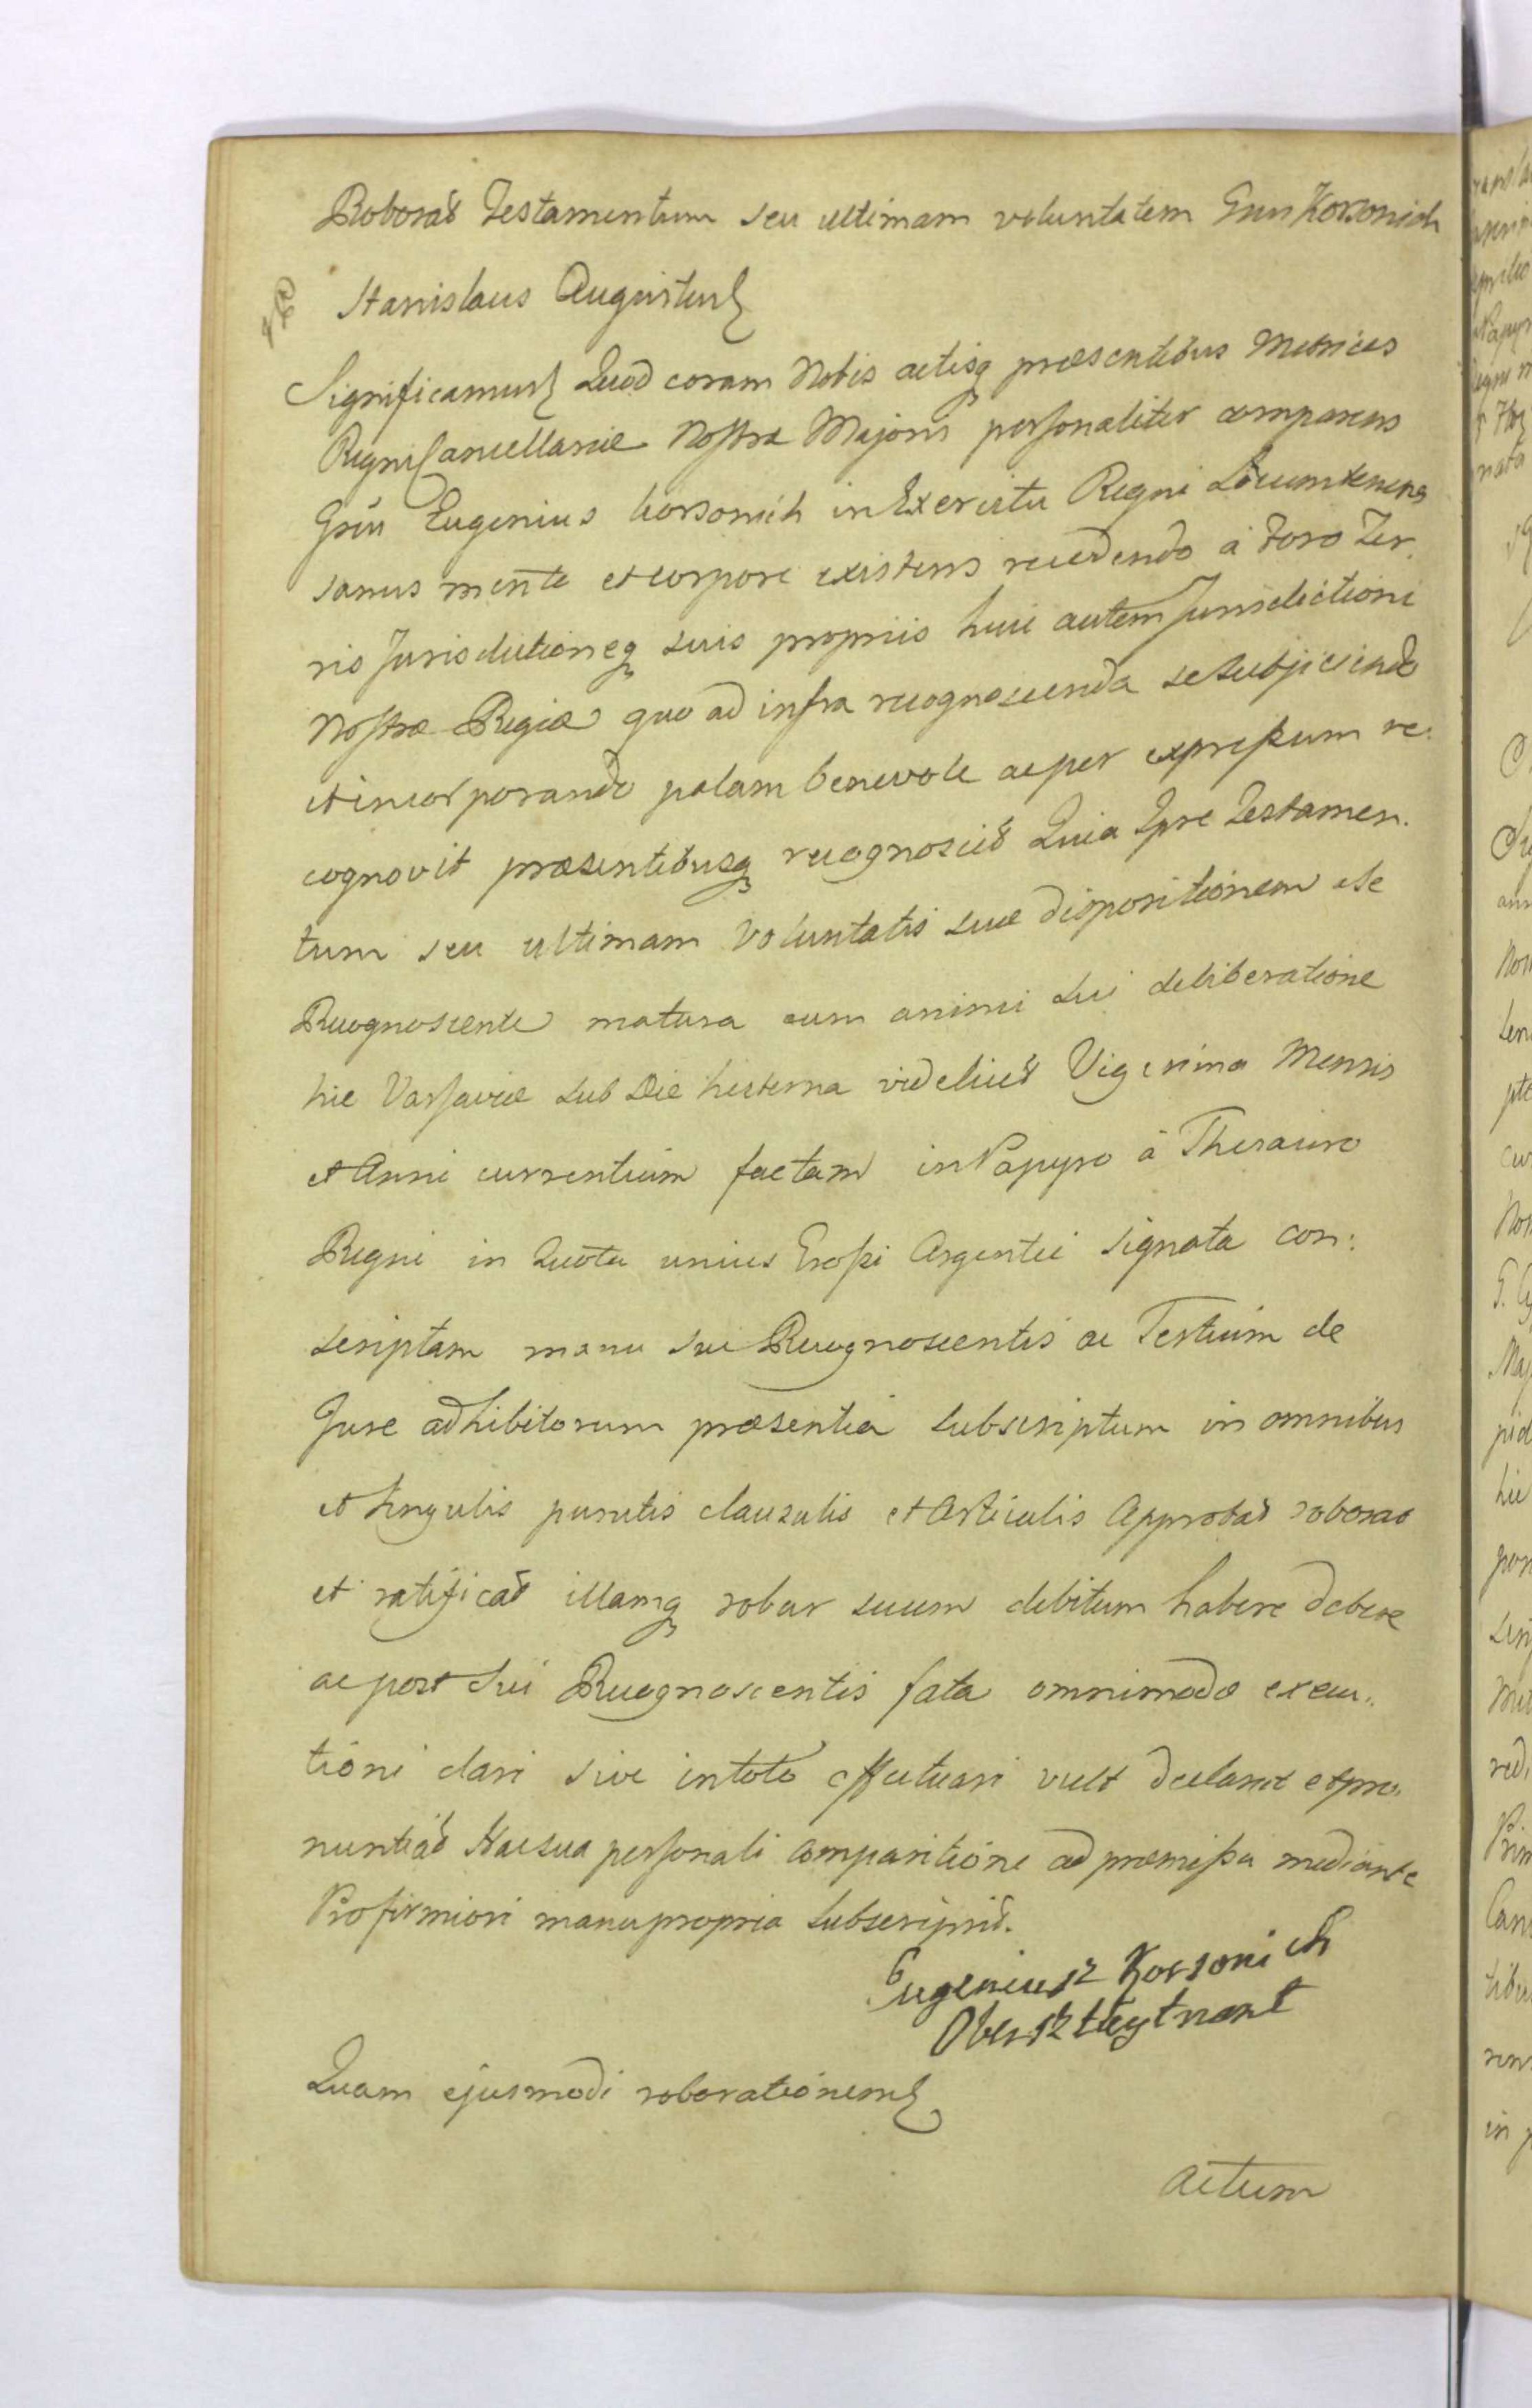 Roborat Testamentum seu ultimam voluntatem Gnri Korsonich
Stanislaus Augustus
Significamus Quod coram Nobis actisq praesentibus Metrices
Regni Cancellariae Nostrae Majoris personaliter comparens
Grsus Eugenius Korsonich in Exercitu Regni Locumtenens
sanus mente et corpore existens recedendo à Foro Ter
ris Jurisdictioneq suis propriis huic autem Jurisdictioni
Nostrae Regiae quo ad infra recognoscenda se subjiciendo
et incorporando palam benevole ac per expressum re.
cognovit praesentibusq recognoscit Quia Ipse Testamen.
tum seu ultimam Voluntatis suae dispositionem a se
Recognoscente matura cum animi sui deliberatione
hic Varsaviae sub die hesterna videlicet Vigesima Mensis
et Anni currentium factam in Papyro à Thesauro
Regni in Quota unius Grossi Argentei signata con:
scriptam manu sui Recognoscentis ac Testium de
Jure adhibitorum praesentia subscriptum in omnibus
et singulis punctis clausulis et Articulis Approbat roborat
et ratificat illamq robur suum debitum habere debere
ac post sui Recognoscentis fata omnimodae execu..
tioni dari sive in toto effectuari vult declarat et pro.
nuntiat Hac sua personali comparitione ad praemissa mediante
Pro firmiori manu propria subscripsit.
Eugeniusz Korsonich
Obersztleytnant
Quam ejusmodi roborationem
Actum